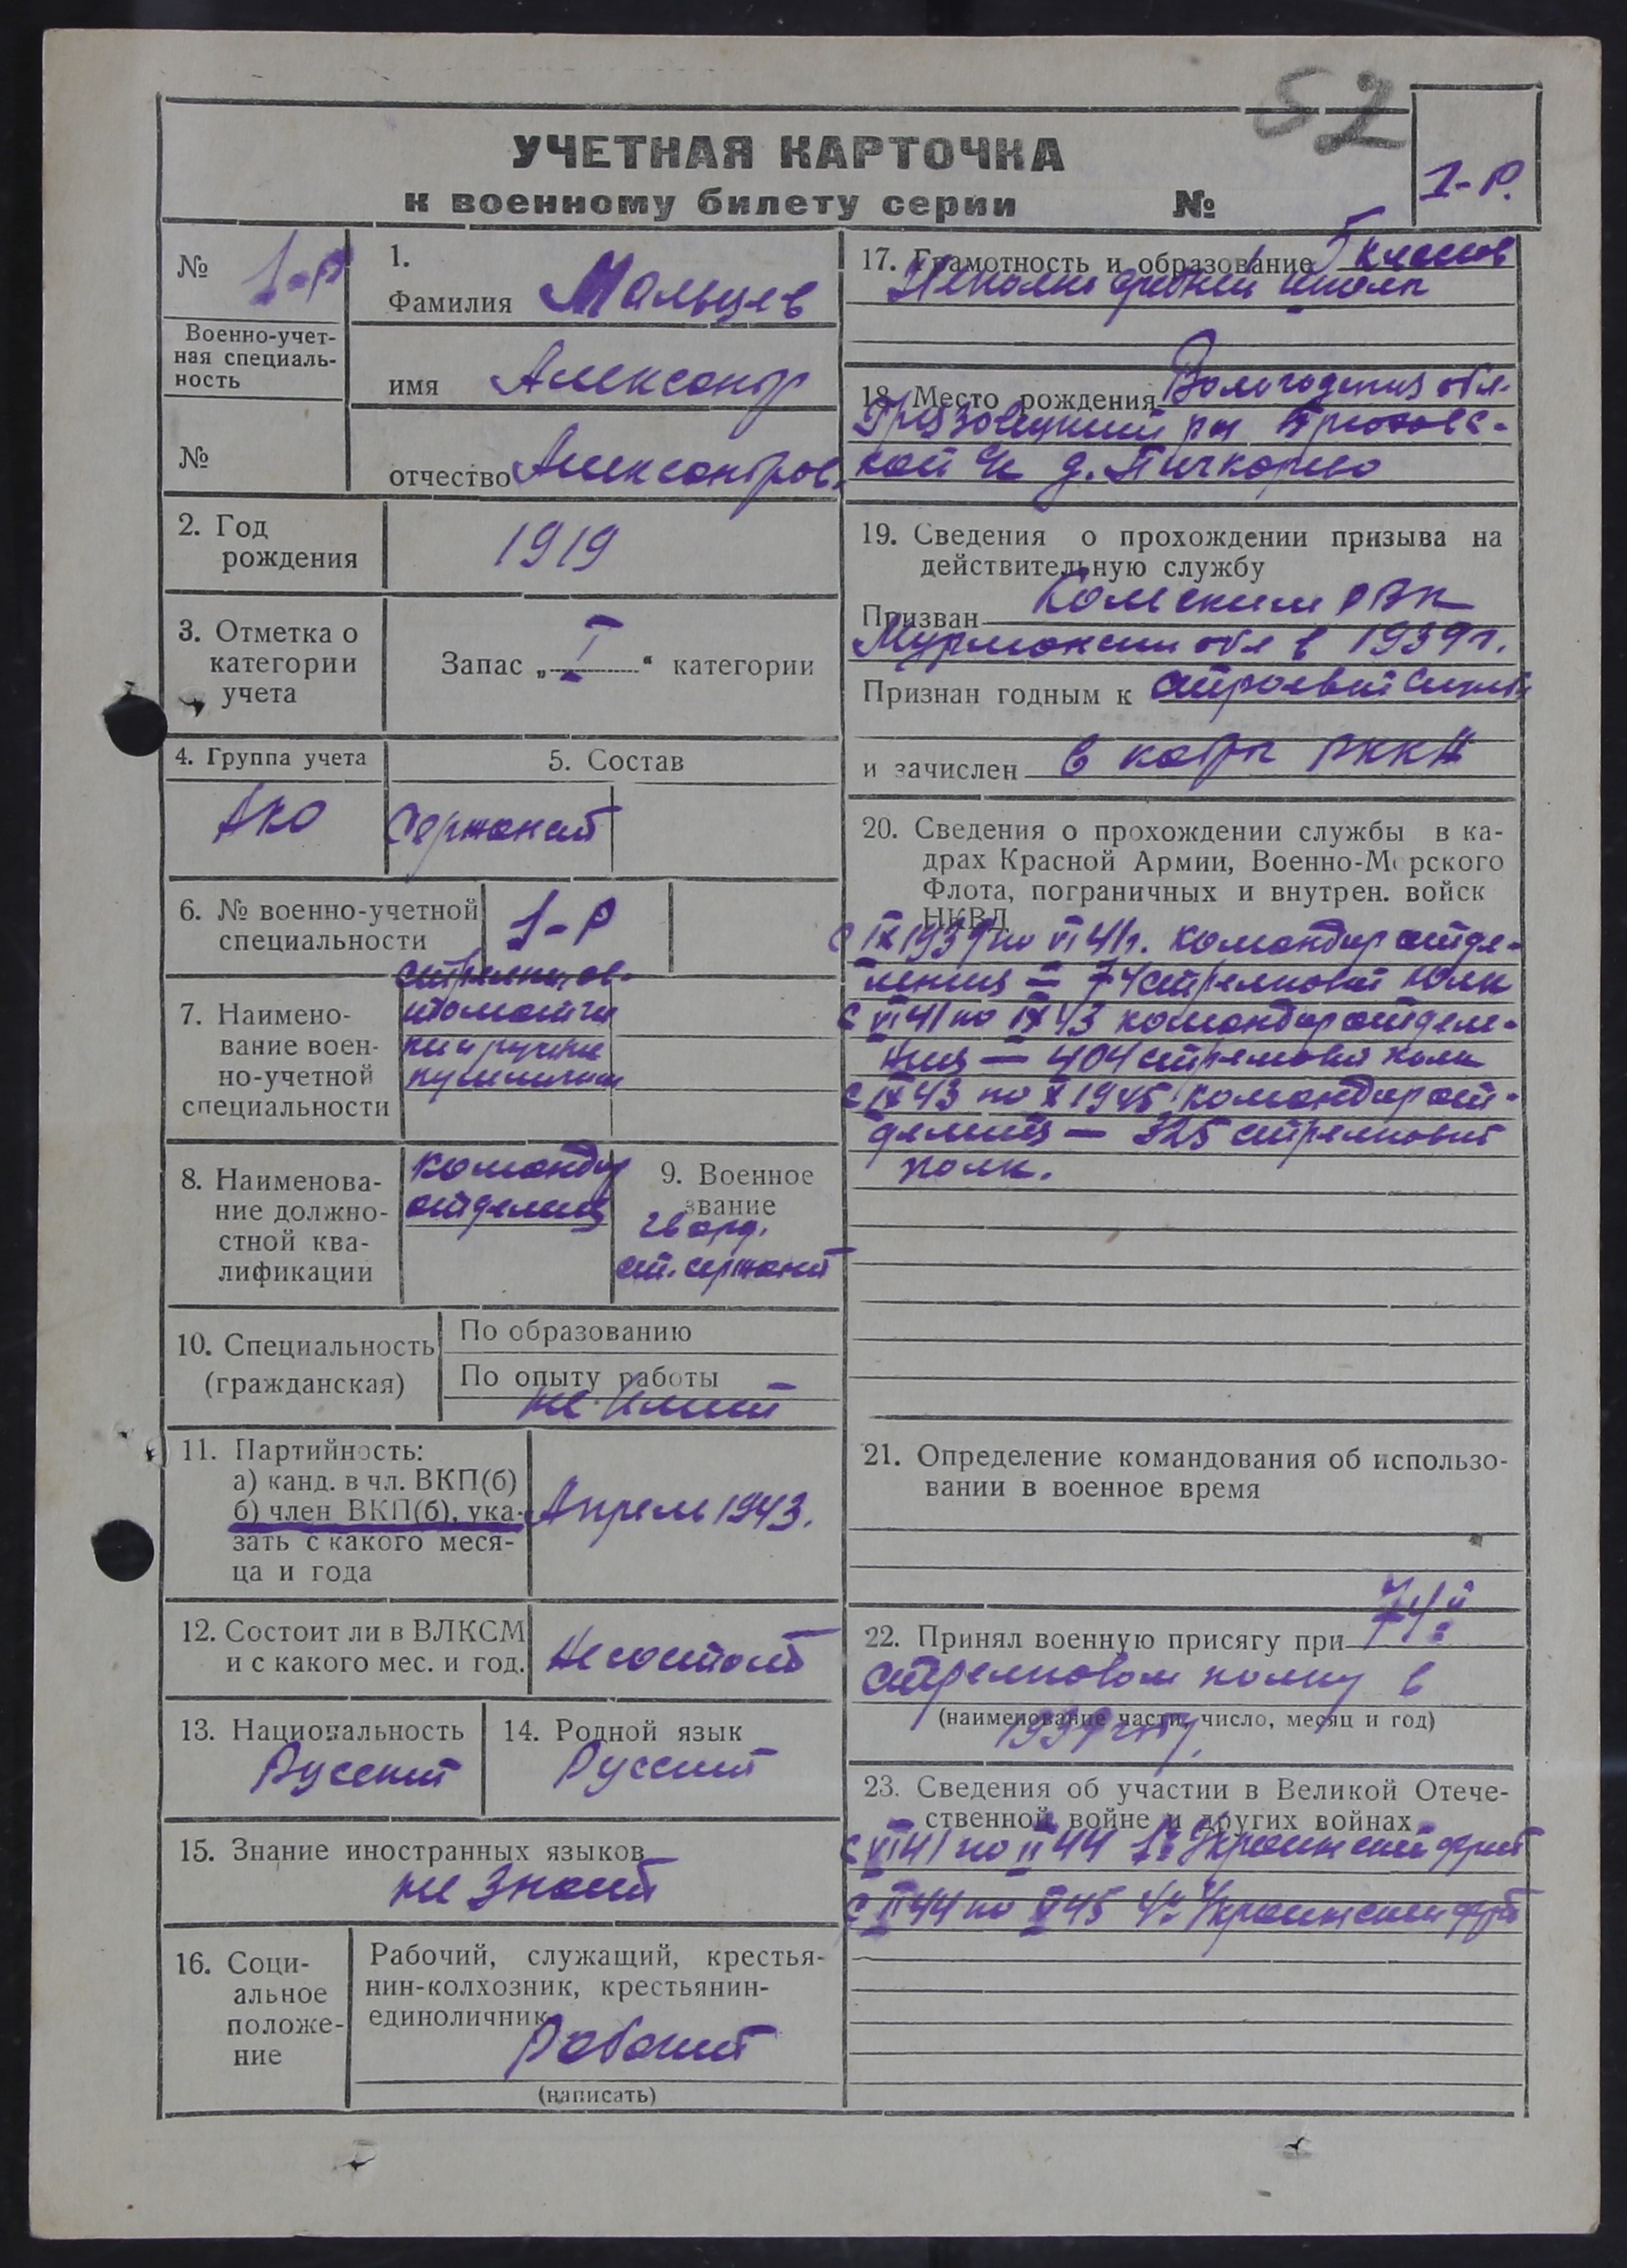 52
УЧЕТНАЯ КАРТОЧКА
к военному билету серии №
1-Р.
№ 1-Р
Военно-учет-
ная специаль-
ность
№
1.
Фамилия Мальцев
имя Александр
отчество Александров.
2. Год
рождения
1919
3. Отметка о
категории
учета
Запас „ I “ категории
4. Группа учета
РКА
5. Состав
Сержант
6. № военно-учетной
специальности
1-Р
7. Наимено-
вание воен-
но-учетной
специальности
стрелки, ав-
томатчи
ки и ручные
пулеметчики
8. Наименова-
ние должно-
стной ква-
лификации
командир
отделения
9. Военное
звание
гвард.
ст. сержант
10. Специальность
(гражданская)
По образованию
По опыту работы
не имеет
11. Партийность:
а) канд. в чл. ВКП(б)
б) член ВКП(б), ука-
зать с какого меся-
ца и года
Апрель 1943.
12. Состоит ли в ВЛКСМ
и с какого мес. и год.
Не состоит
13. Национальность
Русский
14. Родной язык
Русский
15. Знание иностранных языков
не знает
16. Соци-
альное
положе-
ние
Рабочий, служащий, крестья-
нин-колхозник, крестьянин-
единоличник
Рабочий
(написать)
17. Грамотность и образование 5 классов
Неполно средней школы
18. Место рождения Вологодская обл.
Грязовецкий р-н
кой с/с д.
19. Сведения о прохождении призыва на
действительную службу
Призван Кольским РВК
Мурманской обл в 1939 г.
Признан годным к строевой службе
и зачислен в кадры РККА
20. Сведения о прохождении службы в ка-
драх Красной Армии, Военно-Морского
Флота, пограничных и внутрен. войск
НКВД
с IX 1939 по VI 41 г. командир отде-
ления – 74 стрелковый полк
с VI 41 по IX 43 командир отделе-
ния – 404 стрелковый полк
с IX 43 по X 1945 командир от-
деления – 325 стрелковый
полк.
21. Определение командования об использо-
вании в военное время
22. Принял военную присягу при 74й
стрелковом полку в
(наименование части, число, месяц и год)
1939 году.
23. Сведения об участии в Великой Отече-
ственной войне и других войнах
с VI 41 по II 44 1й Украинский фронт
с II 44 по V 45 4й Украинский фронт